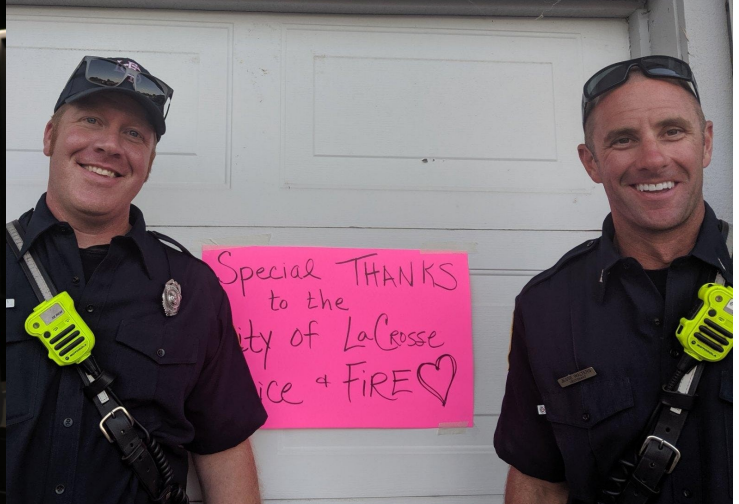 Special THANKS
to the
ity of LaCrosse
ice & FiRE